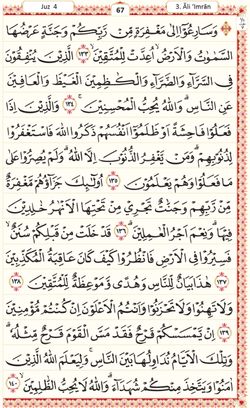 Juz 4
67
3. Āli 'Imrān
وَسَارِعُوْٓا اِلٰى مَغْفِرَةٍ مِّنْ رَّبِّكُمْ وَجَنَّةٍ عَرْضُهَا
السَّمٰوٰتُ وَالْاَرْضُ اُعِدَّتْ لِلْمُتَّقِيْنَ ۙ ١٣٣ الَّذِيْنَ يُنْفِقُوْنَ
فِى السَّرَّۤاءِ وَالضَّرَّۤاءِ وَالْكٰظِمِيْنَ الْغَيْظَ وَالْعَافِيْنَ
عَنِ النَّاسِۗ وَاللّٰهُ يُحِبُّ الْمُحْسِنِيْنَۚ ١٣٤ وَالَّذِيْنَ اِذَا
فَعَلُوْا فَاحِشَةً اَوْ ظَلَمُوْٓا اَنْفُسَهُمْ ذَكَرُوا اللّٰهَ فَاسْتَغْفَرُوْا
لِذُنُوْبِهِمْۗ وَمَنْ يَّغْفِرُ الذُّنُوْبَ اِلَّا اللّٰهُ ۗ وَلَمْ يُصِرُّوْا عَلٰى
مَا فَعَلُوْا وَهُمْ يَعْلَمُوْنَ ١٣٥ اُولٰۤىِٕكَ جَزَاۤؤُهُمْ مَّغْفِرَةٌ
مِّنْ رَّبِّهِمْ وَجَنّٰتٌ تَجْرِيْ مِنْ تَحْتِهَا الْاَنْهٰرُ خٰلِدِيْنَ
فِيْهَا ۗ وَنِعْمَ اَجْرُ الْعٰمِلِيْنَۗ ١٣٦ قَدْ خَلَتْ مِنْ قَبْلِكُمْ سُنَنٌۙ
فَسِيْرُوْا فِى الْاَرْضِ فَانْظُرُوْا كَيْفَ كَانَ عَاقِبَةُ الْمُكَذِّبِيْنَ
١٣٧ هٰذَا بَيَانٌ لِّلنَّاسِ وَهُدًى وَّمَوْعِظَةٌ لِّلْمُتَّقِيْنَ ١٣٨
وَلَا تَهِنُوْا وَلَا تَحْزَنُوْا وَاَنْتُمُ الْاَعْلَوْنَ اِنْ كُنْتُمْ مُّؤْمِنِيْنَ
١٣٩ اِنْ يَّمْسَسْكُمْ قَرْحٌ فَقَدْ مَسَّ الْقَوْمَ قَرْحٌ مِّثْلُهٗ ۗ
وَتِلْكَ الْاَيَّامُ نُدَاوِلُهَا بَيْنَ النَّاسِۚ وَلِيَعْلَمَ اللّٰهُ الَّذِيْنَ
اٰمَنُوْا وَيَتَّخِذَ مِنْكُمْ شُهَدَاۤءَ ۗ وَاللّٰهُ لَا يُحِبُّ الظّٰلِمِيْنَۙ ١٤٠